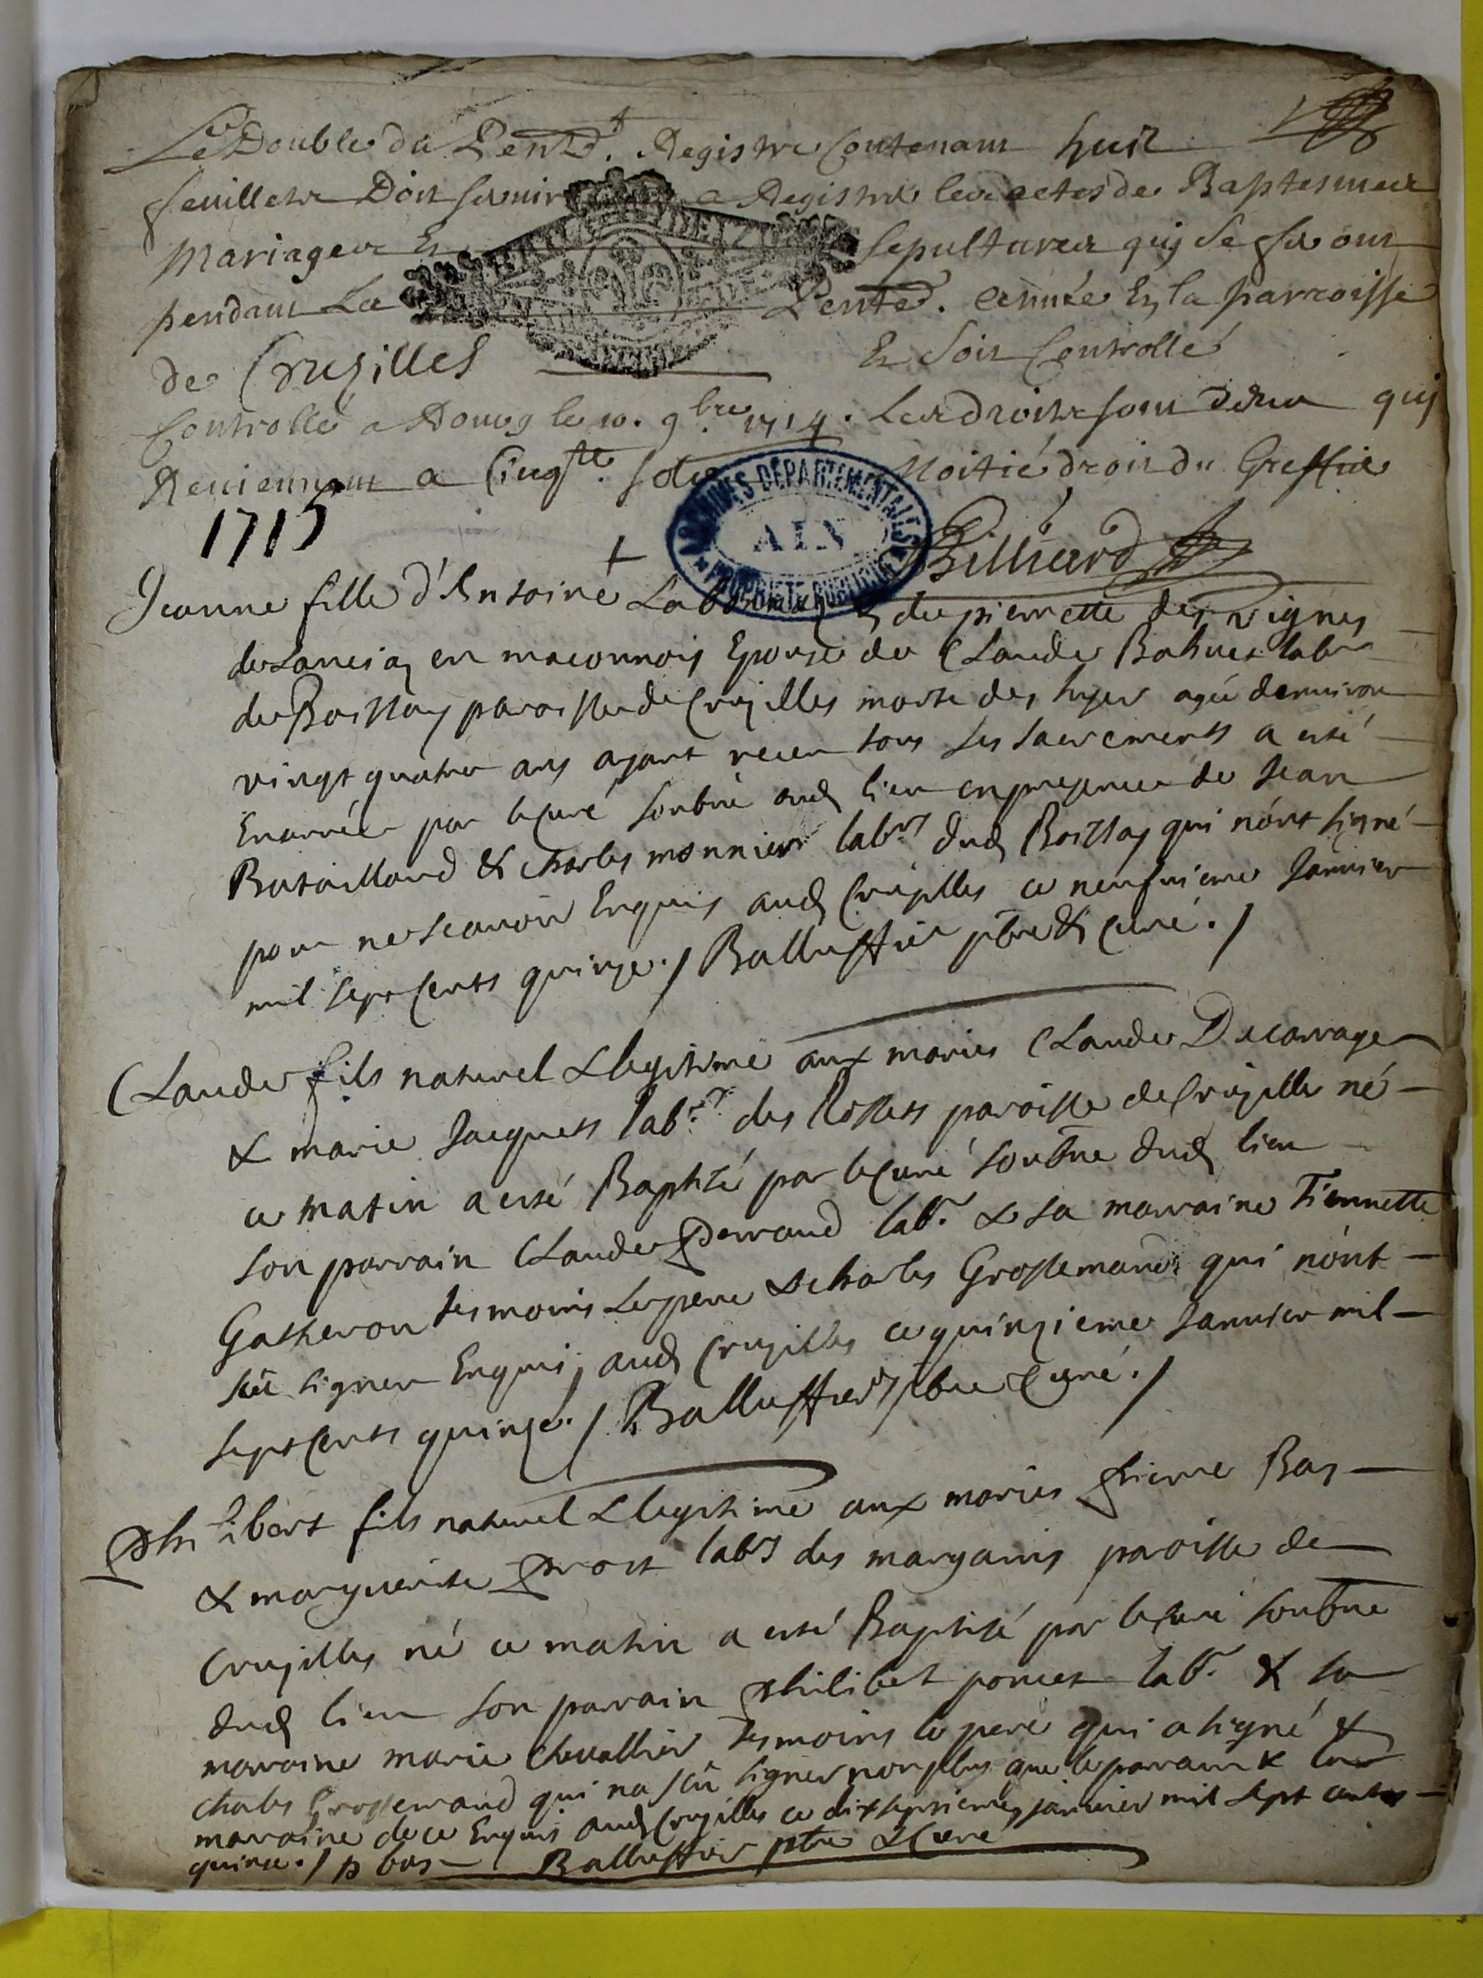 Le Double du Pent.d Registre Contenant huit
feuillets Doit servir a Registré les actes de Baptesmes
Mariages Et sepultures quy se feront
pendant La Pente. année En la parroisse
de Cruzilles Et Soit Controllé
Controllé a le 10. 9.bre 1714. Les droits sont deus quj
Reviennent a Cinq.te sols Moitié droit du Greffie
1715
ARCHIVES DEPARTEMENTALES
AIN
PROPRIETE PUBLIQUE
Billiard
Jeanne fille d'Antoine & de pierrette des vignes
de en maconnois Epouse de Claude labr
de Boissay paroisse de Crujilles morte des hyer agée denviron
vingt quatre ans ayant receu tous ses sacrements a esté
Enterrée par le curé soubné dud lieu en presence de Jean
Bataillard & charles monnier labrs dud Boissay qui n'ont signé
pour ne scavoir Enquis aud Crujilles ce neufvieme Janvier
mil sept Cents quinze ./ Balluffier pbre & Curé ./
Claude fils naturel & legitime aux maries Claude Ducarrage
& marie Jacquets labrs des paroisse de Crujilles né
ce matin a esté Baptisé par le curé soubné dud lieu
son parrain Claude Perraud labr. & sa marraine Tiennette
Gatheron tesmoins le pere & charles Grossemand qui n'ont
sçû signer Enquis aud Crujilles ce quinzieme Janvier mil
sept Cents quinze ./ Balluffier pbre & Curé ./
Philibert fils naturel & legitime aux maries pierre Bas
& marguerite Prost labrs des marganis paroisse de
Crujilles né ce matin a esté Baptisé par le curé soubné
dud lieu son parrain philibet poncet labr. & sa
marraine marie Chevallier tesmoins le pere qui a signé &
charles Grossemand qui na sçû signer non plus que le parrain & la
maraine de ce Enquis aud Crujilles ce dix septiemes janvier mil sept cents
quinze ./ p bas Balluffier pbre & Curé